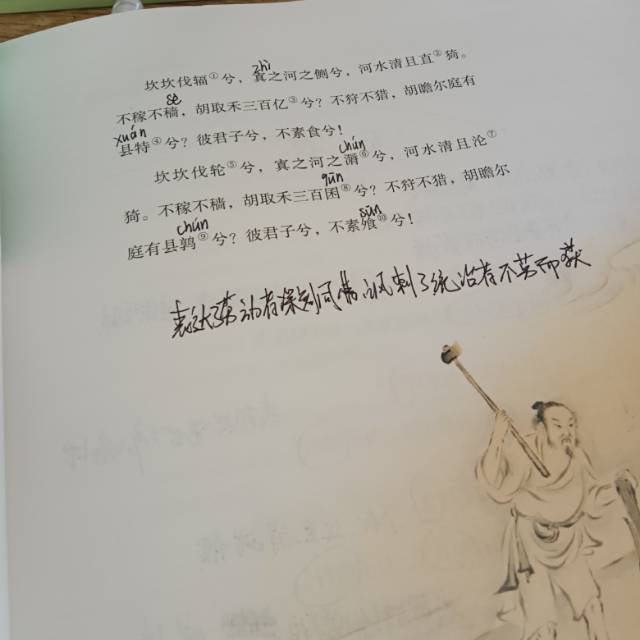 zhì
坎坎伐辐①兮，寘之河之侧兮，河水清且直②猗。
sè
不稼不穑，胡取禾三百亿③兮？不狩不猎，胡瞻尔庭有
xuán
县特④兮？彼君子兮，不素食兮！
chún
坎坎伐轮⑤兮，寘之河之漘⑥兮，河水清且沦⑦
qūn
猗。不稼不穑，胡取禾三百囷⑧兮？不狩不猎，胡瞻尔
chún sūn
庭有县鹑⑨兮？彼君子兮，不素飧⑩兮！
表达了劳动者深刻同情，讽刺了统治者不劳而获